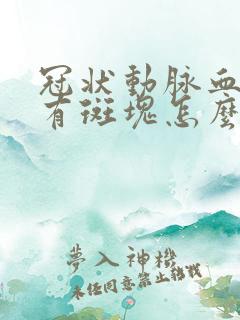 冠状動脉血
有斑塊怎麽
夢入神機
未经同意禁止转载